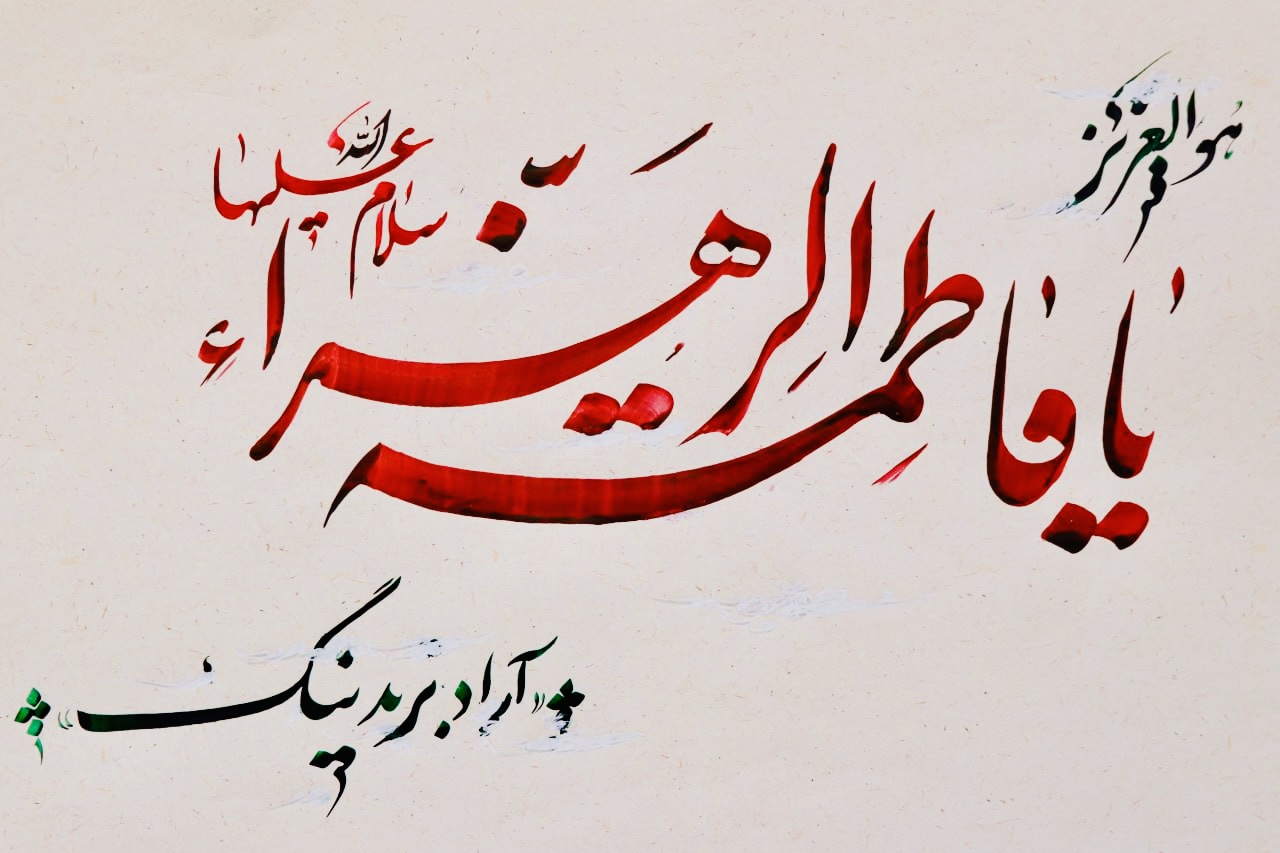 هوالعزیز
یا فاطمة الزهراء
سلام الله علیها
«آراد برندینگ»